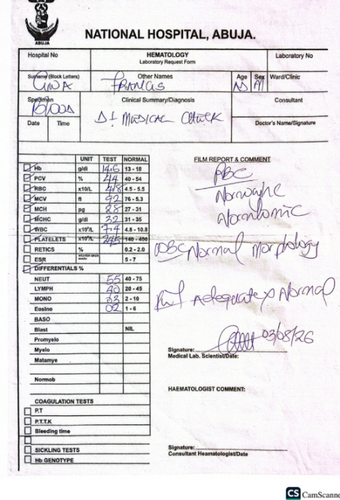 ABUJA
NATIONAL HOSPITAL, ABUJA.
Hospital No
HEMATOLOGY
Laboratory Request Form
Laboratory No
Surname (Block Letters)
Other Names
Age Sex Ward/Clinic
Francis AD M
Specimen
Clinical Summary/Diagnosis
Consultant
Blood
Medical Check
Date Time
Doctor's Name/Signature
UNIT TEST NORMAL
FILM REPORT & COMMENT
Hb g/dl 14.6 13 - 18
PCV % 44 40 - 54
RBC x10/L 4.8 4.5 - 5.5
MCV fl 92 76 - 5.3
MCH pg 28 27 - 31
MCHC g/dl 32 31 - 35
WBC x10⁹/L 7.4 4.8 - 10.8
PLATELETS x10⁹/L 245 140 - 400
RETICS % 0.2 - 2.0
ESR 5 - 7
DIFFERENTIALS %
NEUT 55 40 - 75
LYMPH 40 20 - 45
MONO 03 2 - 10
Eosine 02 1 - 6
BASO
Blast NIL
Promyelo
Myelo
Matamye
Normob
RBC
WBC Normal Morphology
Adequate & Normal
03/08/26
Signature:
Medical Lab. Scientist/Date:
HAEMATOLOGIST COMMENT:
COAGULATION TESTS
P.T
P.T.T.K
Bleeding time
SICKLING TESTS
Hb GENOTYPE
Signature:
Consultant Heamatologist/Date
CS CamScanne